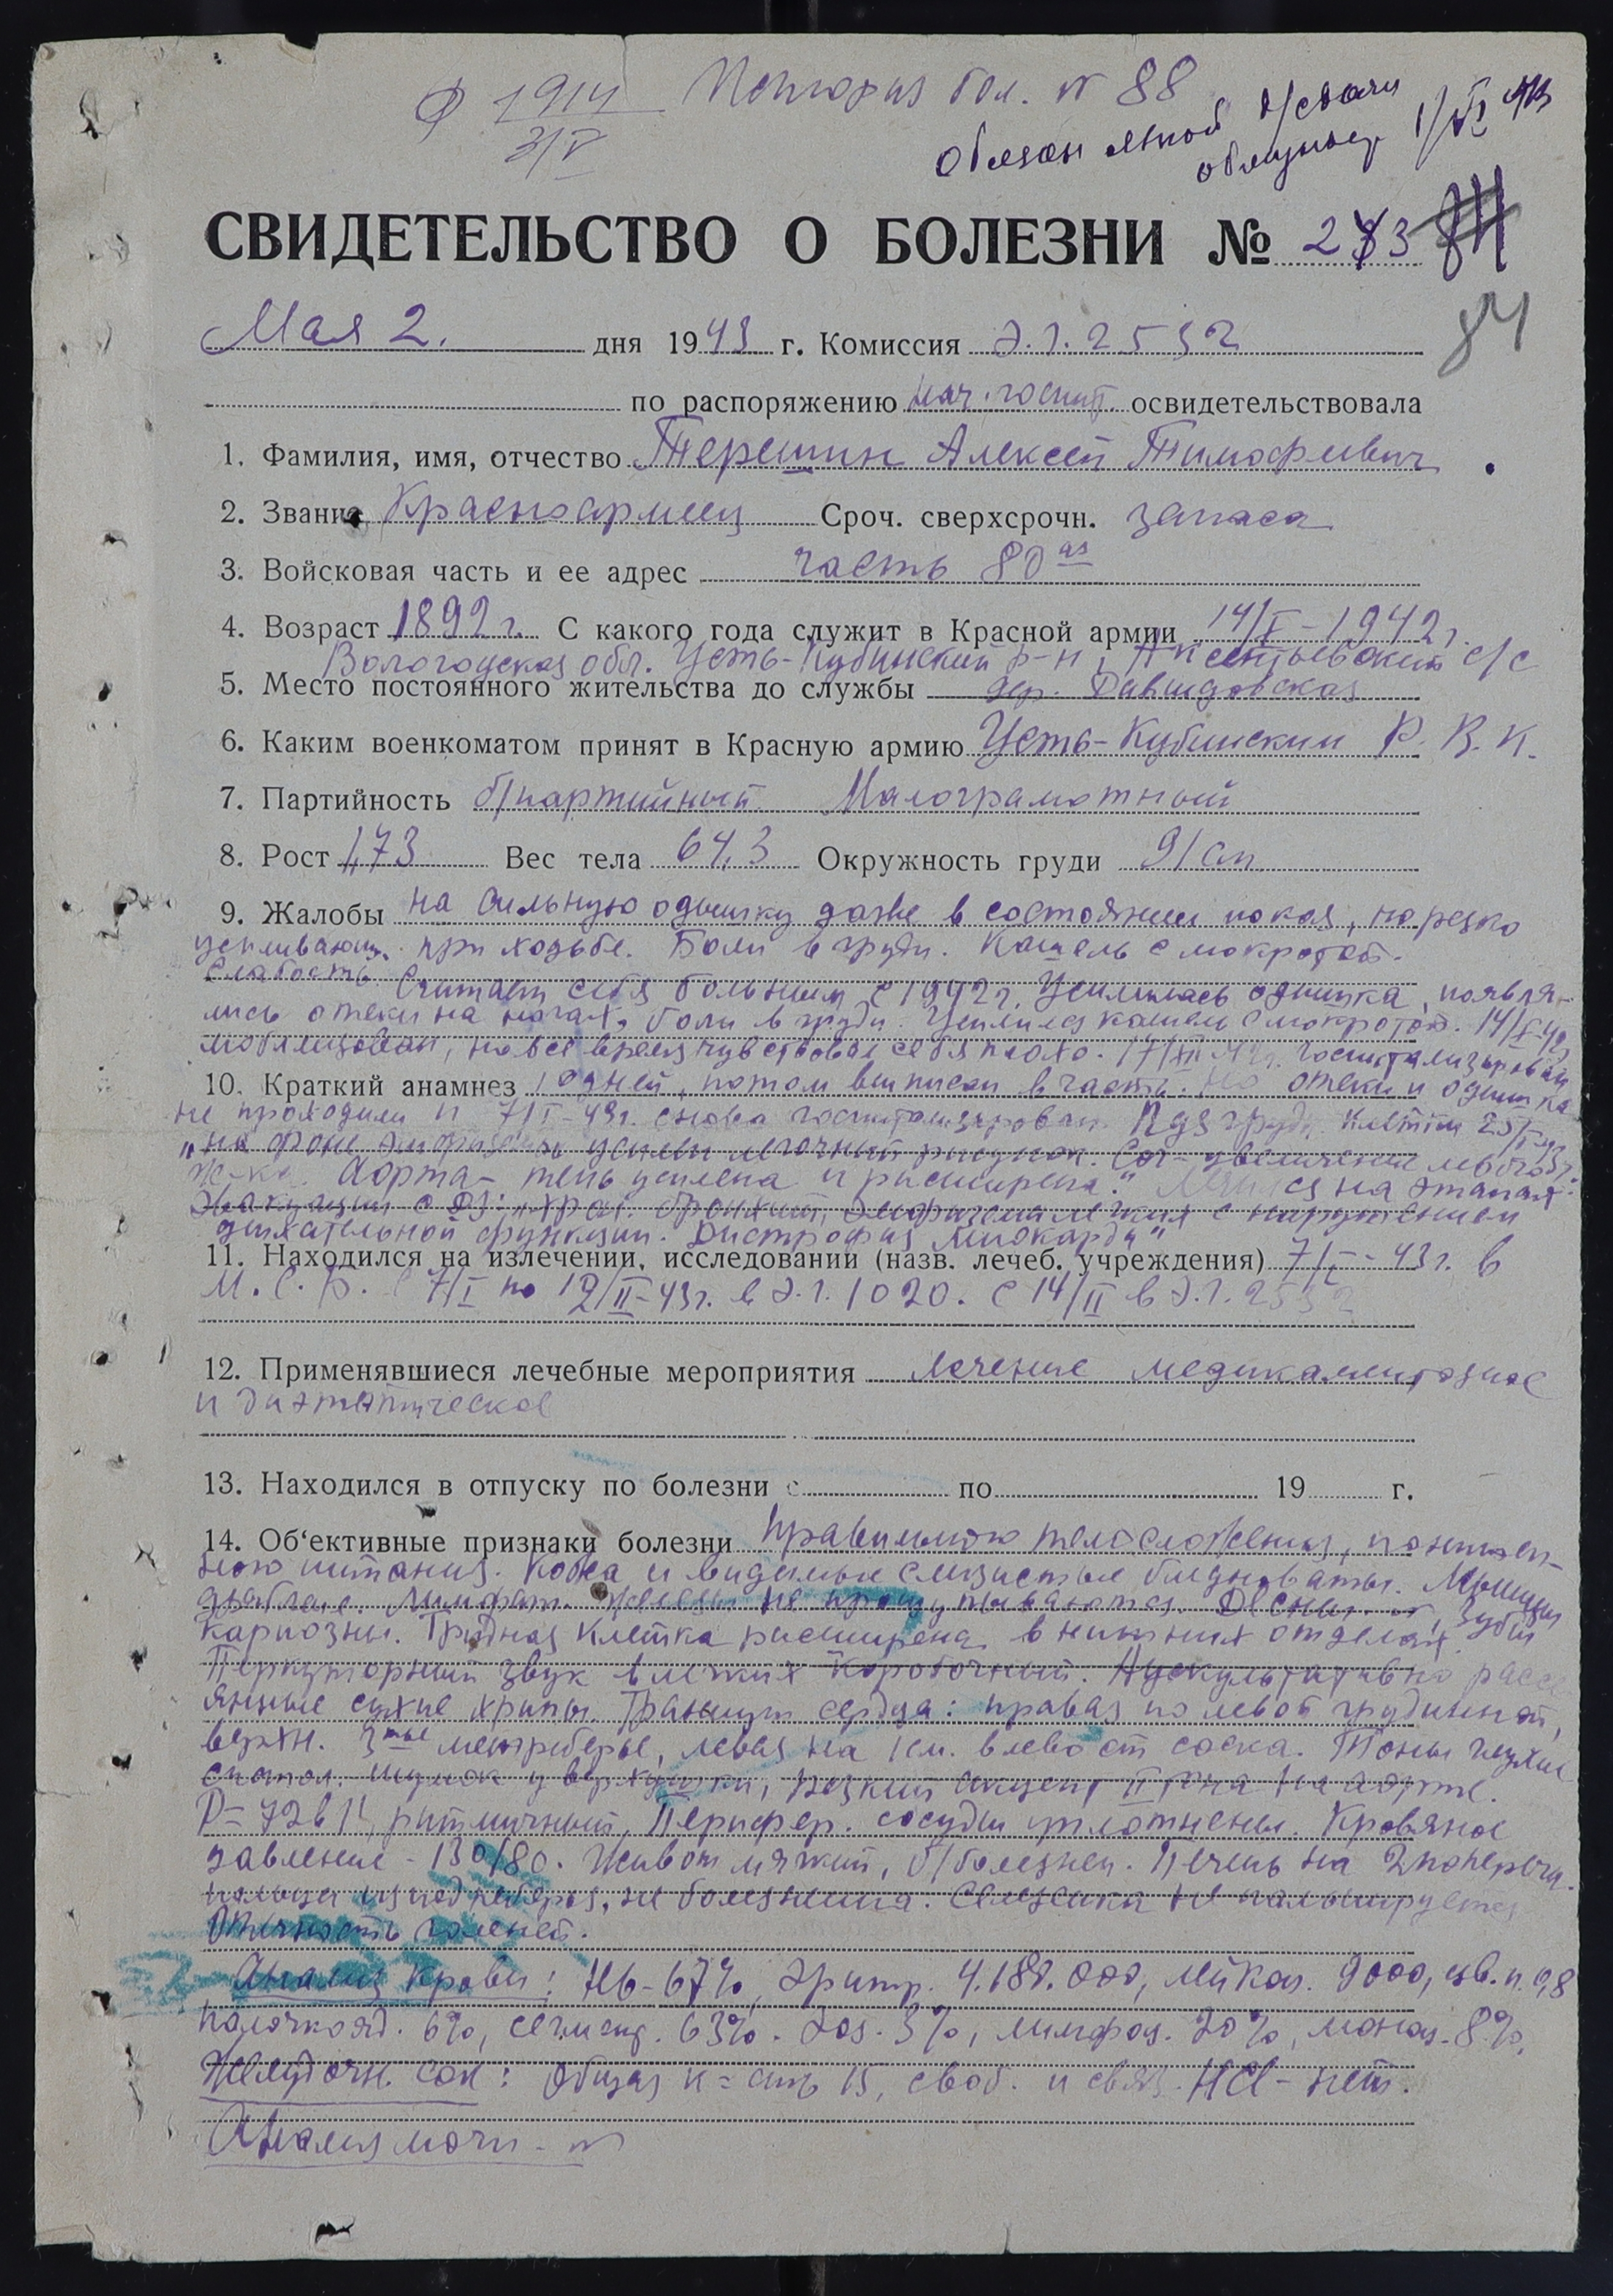 Ф 1914 История бол. № 88
3/V
1/VI 43
СВИДЕТЕЛЬСТВО О БОЛЕЗНИ № 273
84
Мая 2. дня 1943 г. Комиссия Э.Г. 2532
по распоряжению нач. госпит. освидетельствовала
1. Фамилия, имя, отчество Терешин Алексей Тимофеевич
2. Звание Красноармеец Сроч. сверхсрочн. запаса
3. Войсковая часть и ее адрес часть 80ая
4. Возраст 1892 г. С какого года служит в Красной армии 14/V-1942 г.
Вологодская обл. Усть-Кубинский р-н, с/с
5. Место постоянного жительства до службы дер. Давыдовская
6. Каким военкоматом принят в Красную армию Усть-Кубинским Р.В.К.
7. Партийность б/партийный Малограмотный
8. Рост 1,73 Вес тела 64,3 Окружность груди 91 см
9. Жалобы на сильную одышку даже в состоянии покоя, но резко
усиливающ. при ходьбе. Боли в груди. Кашель с мокротой.
Слабость
Считает себя больным с 1942 г. Усилилась одышка, появи-
лись отеки на ногах, боли в груди. Усилился кашель с мокротой.
мобилизован, но все время чувствовал себя плохо. 17/XII 42 г. госпитализирован
10. Краткий анамнез 10 дней, потом выписан в часть. Но отеки и одышка
не проходили и 7/I-43 г. снова госпитализирован. Rgя груди. клетки
"на фоне эмфиземы усилен легочный рисунок. Cor-увеличение левого
ж-ка. Аорта-тень усилена и расширена." Лечился на этапах
эвакуации с DS: "хрон. бронхит, эмфизема легких с нарушением
дыхательной функции. Дистрофия миокарда"
11. Находился на излечении, исследовании (назв. лечеб. учреждения) 7/I-43 г. в
М.С.Б. с 7/I по 12/II-43 г. в Э.Г. 1020. С 14/II в Э.Г. 2532
12. Применявшиеся лечебные мероприятия лечение медикаментозное
и диэтетическое
13. Находился в отпуску по болезни с по 19 г.
14. Об'ективные признаки болезни правильного телосложения, понижен-
ного питания. Кожа и видимые слизистые бледноваты. Мышцы
дряблые. Лимфат. железы не прощупываются. Десны N, зубы
кариозны. Грудная клетка расширена в нижних отделах.
Перкуторный звук в легких коробочный. Аускультативно рассе
янные сухие хрипы. Границы сердца: правая по левой грудинной,
верхн. 3тье межреберье, левая на 1 см. влево от соска. Тоны глухие
систол. шумок у верхушки, резкий акцент II тона на аорте.
P=72 в 1', ритмичный, Перифер. сосуды уплотнены. Кровяное
давление-130/80. Живот мягкий, б/болезнен. Печень на 2 поперечн.
пальца из под ребра, не болезненна. Селезенка не пальпируется
Отечность голеней.
Анализ крови: Hb-67%, эритр. 4.180.000, лейкоц. 9000, цв.п. 0,8
палочкояд. 6%, сегмент. 63%. Эоз. 3%, лимфоц. 20%, моноц. 8%.
Желудочн. сок: Общая к=сть 15, своб. и связ. HCl-нет.
Анализ мочи-N